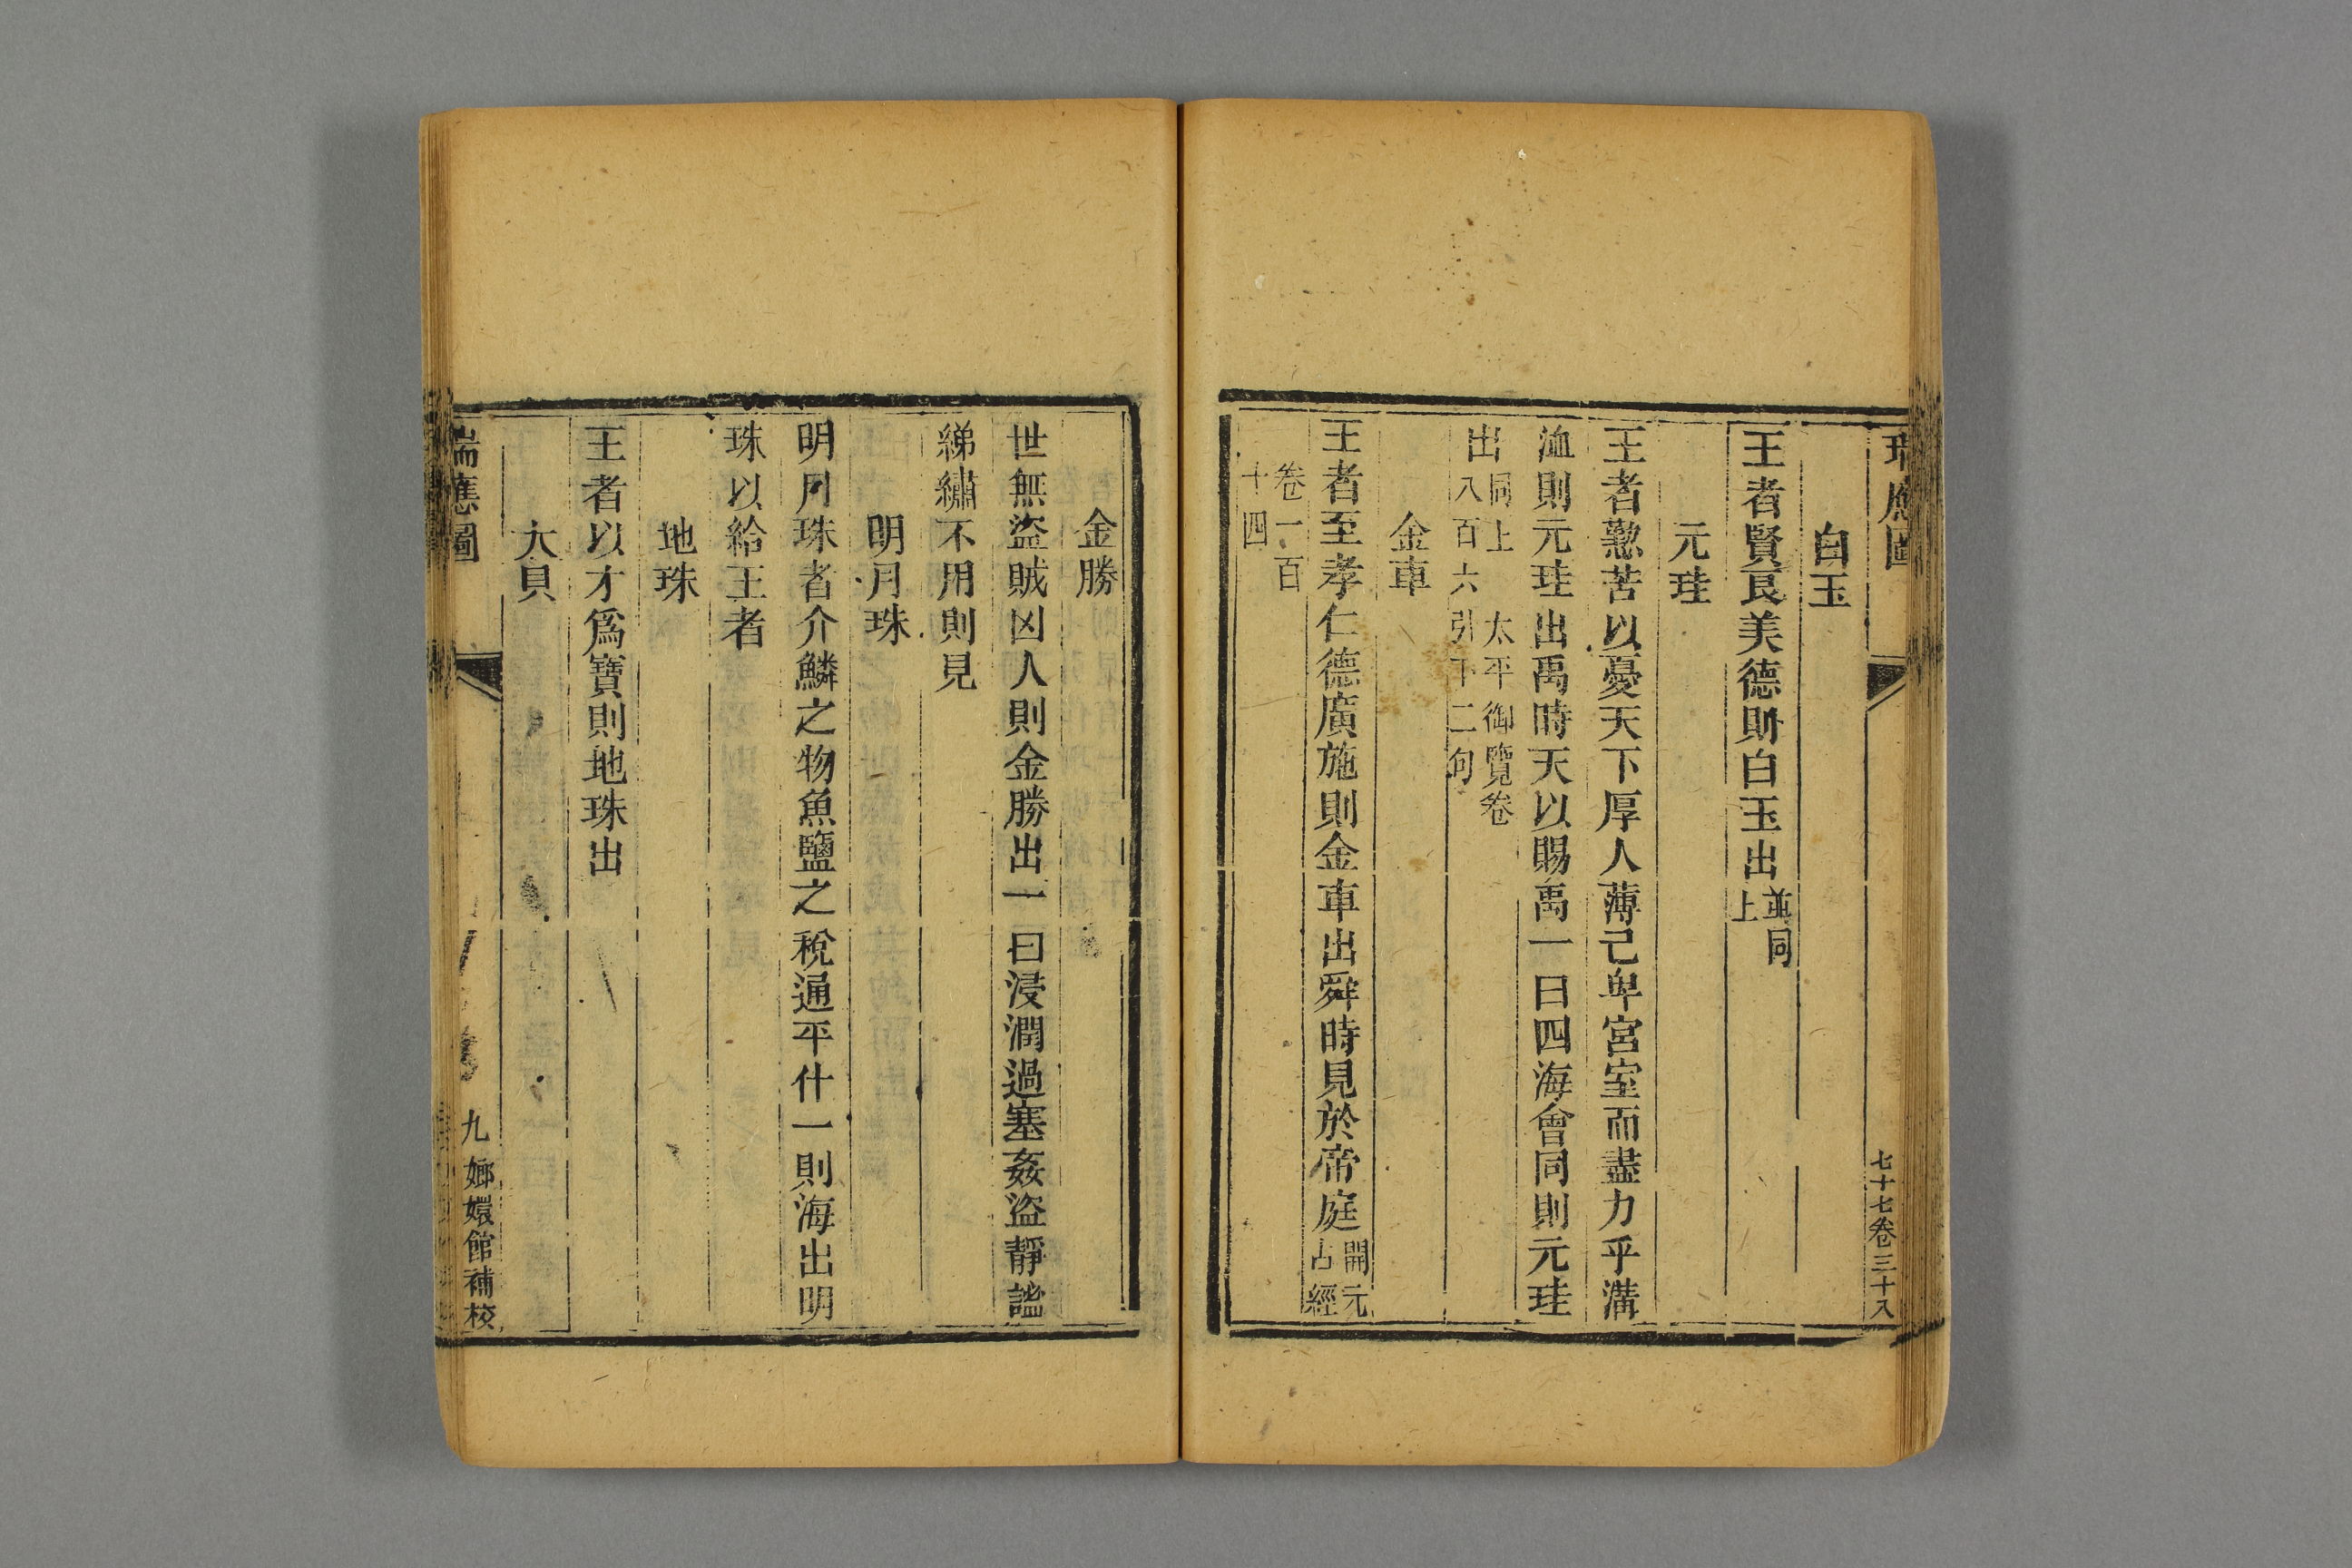 瑞應圖
七十七卷三十八
白玉
王者賢良美德則白玉出並同上
元珪
王者懃苦以憂天下厚人薄己卑宮室而盡力乎溝
洫則元珪出禹時天以賜禹一曰四海會同則元珪
出同上 太平御覽卷八百六引下二句
金車
王者至孝仁德廣施則金車出舜時見於帝庭開元占經
卷一百十四
金勝
世無盜賊凶人則金勝出一曰浸潤過塞姦盜靜謐
綈繡不用則見
明月珠
明月珠者介鱗之物魚鹽之稅通平什一則海出明
珠以給王者
地珠
王者以才爲寶則地珠出
大貝
瑞應圖
九
嫏嬛館補校